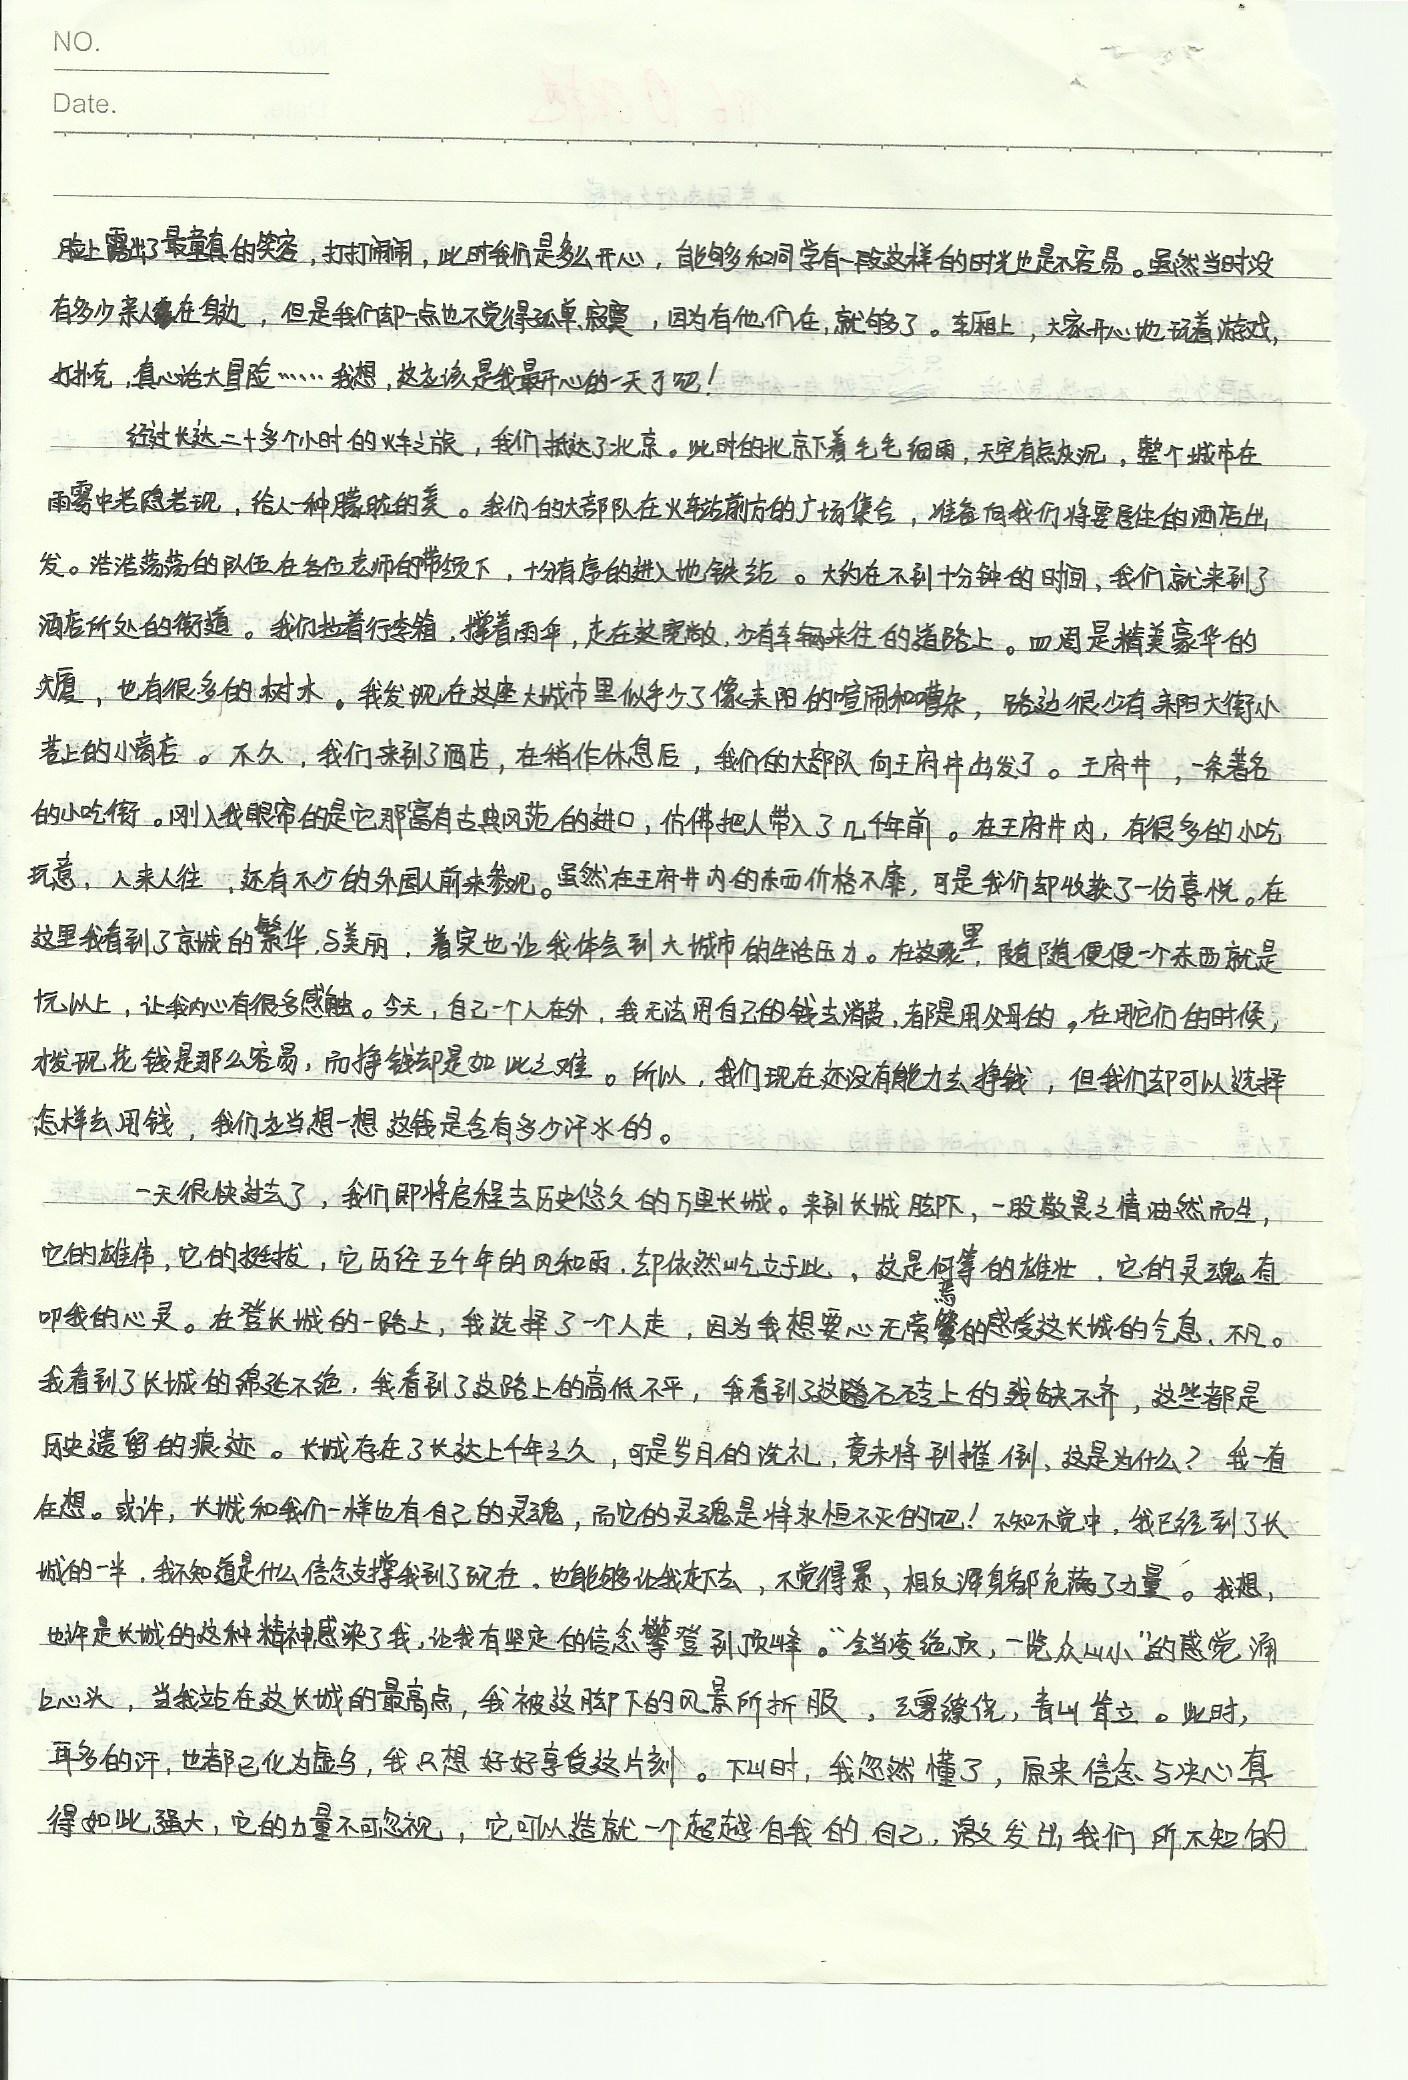 NO.
Date.
脸上露出了最童真的笑容，打打闹闹，此时我们是多么开心，能够和同学有一段这样的时光也是不容易。虽然当时没
有多少亲人在身边，但是我们却一点也不觉得孤单、寂寞，因为有他们在，就够了。车厢上，大家开心地玩着游戏，
打扑克，真心话大冒险……我想，这应该是我最开心的一天了吧！
经过长达二十多个小时的火车之旅，我们抵达了北京。此时的北京下着毛毛细雨，天空有点灰沉，整个城市在
雨雾中若隐若现，给人一种朦胧的美。我们的大部队在火车站前方的广场集合，准备向我们将要居住的酒店出
发。浩浩荡荡的队伍在各位老师的带领下，十分有序的进入地铁站。大约在不到十分钟的时间，我们就来到了
酒店所处的街道。我们拉着行李箱，撑着雨伞，走在这宽敞，少有车辆来往的道路上。四周是精美豪华的
大厦，也有很多的树木。我发现在这座大城市里似乎少了像耒阳的喧闹和嘈杂，路边很少有耒阳大街小
巷上的小商店。不久，我们来到了酒店，在稍作休息后，我们的大部队向王府井出发了。王府井，一条著名
的小吃街。刚入我眼帘的是它那富有古典风范的进口，仿佛把人带入了几千年前。在王府井内，有很多的小吃
玩意，人来人往，还有不少的外国人前来参观。虽然在王府井内的东西价格不廉，可是我们却收获了一份喜悦。在
这里我看到了京城的繁华与美丽，着实也让我体会到大城市的生活压力。在这里，随随便便一个东西就是
十元以上，让我内心有很多感触。今天，自己一个人在外，我无法用自己的钱去消费，都是用父母的，在用它们的时候，
才发现花钱是那么容易，而挣钱却是如此之难。所以，我们现在还没有能力去挣钱，但我们却可以选择
怎样去用钱，我们应当想一想这钱是含有多少汗水的。
一天很快过去了，我们即将启程去历史悠久的万里长城。来到长城脚下，一股敬畏之情油然而生，
它的雄伟，它的挺拔，它历经五千年的风和雨，却依然屹立于此，这是何等的雄壮，它的灵魂直
叩我的心灵。在登长城的一路上，我选择了一个人走，因为我想要心无旁骛的感受这长城的气息、不凡。
我看到了长城的绵延不绝，我看到了这路上的高低不平，我看到了这石砖上的残缺不齐，这些都是
历史遗留的痕迹。长城存在了长达上千年之久，可是岁月的洗礼，竟未将到摧倒，这是为什么？我一直
在想。或许，长城和我们一样也有自己的灵魂，而它的灵魂是将永恒不灭的吧！不知不觉中，我已经到了长
城的一半，我不知道是什么信念支撑我到了现在，也能够让我走下去，不觉得累，相反浑身都充满了力量。我想，
也许是长城的这种精神感染了我，让我有坚定的信念攀登到顶峰。“会当凌绝顶，一览众山小”的感觉涌
上心头，当我站在这长城的最高点，我被这脚下的风景所折服，云雾缭绕，青山耸立。此时，
再多的汗，也都已化为虚乌，我只想好好享受这片刻。下山时，我忽然懂了，原来信念与决心真
得如此强大，它的力量不可忽视，它可以造就一个超越自我的自己，激发出我们所不知的